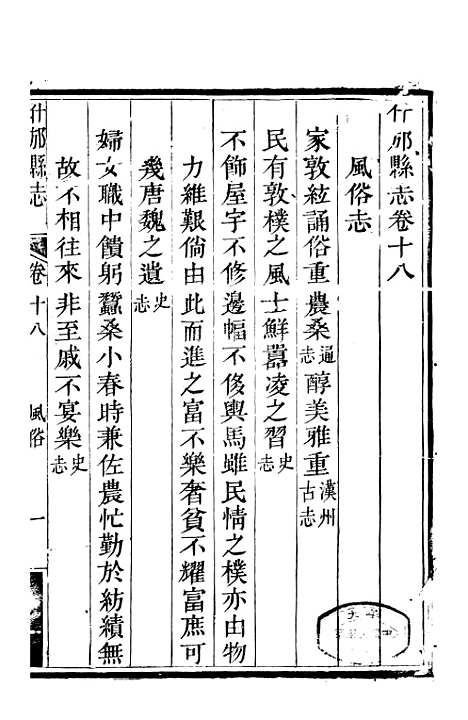 什邡縣志卷十八
風俗志
家敦絃誦俗重農桑通志醇美雅重漢州古志
民有敦樸之風士鮮囂凌之習史志
不飾屋宇不修邊幅不侈輿馬雖民情之樸亦由物
力維艱倘由此而進之富不樂奢貧不耀富庶可
幾唐魏之遺史志
婦女職中饋躬蠶桑小春時兼佐農忙勤於紡績無
故不相往來非至戚不宴樂史志
什邡縣志
卷十八
風俗
一